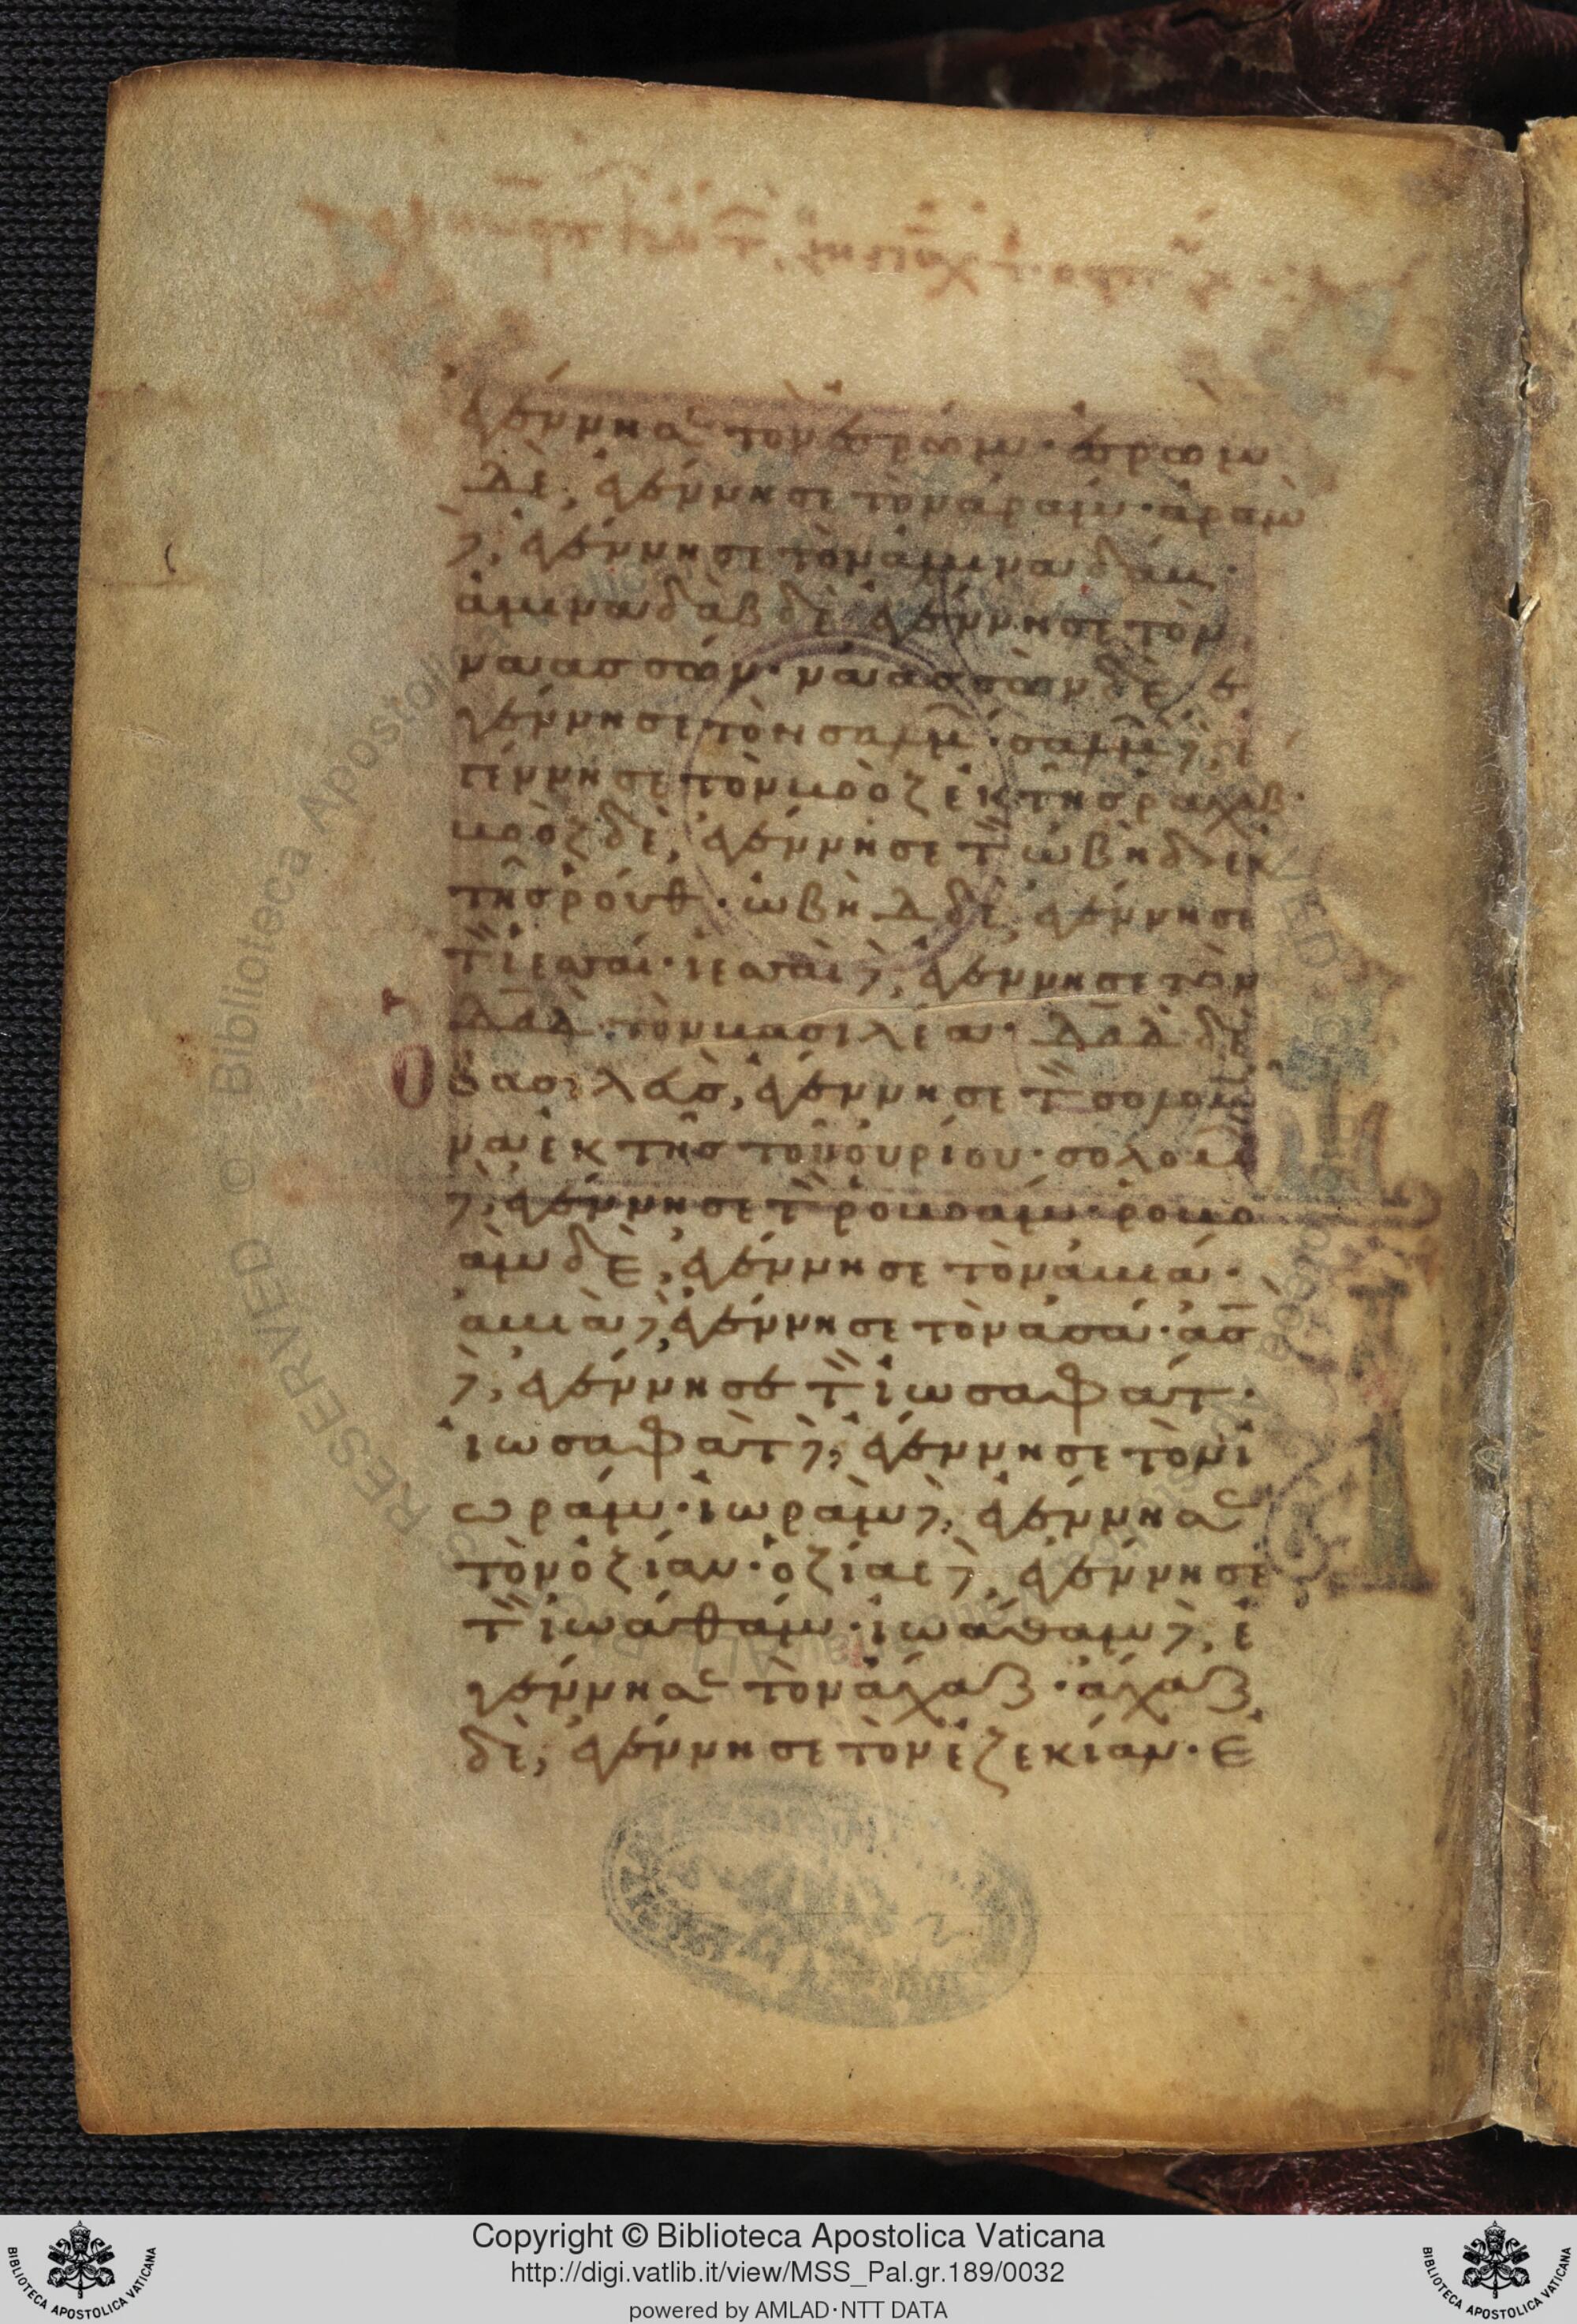 ἐγέννησε τὸν ἐσρώμ· ἐσρωμ
δὲ, ἐγέννησε τὸν ἀράμ· ἀραμ
δὲ, ἐγέννησε τὸν ἀμιναδάβ·
ἀμιναδὰβ δὲ ἐγέννησε τὸν
ναασσών· ναασσὼν δὲ ἐ
γέννησε τὸν σαλμ̑· σαλμ̑ δὲ, ἐ
γέννησε τὸν βοὸζ ἐκ τῆς ῥαχάβ·
βοὸζ δὲ, ἐγέννησε τ̏ ὠβὴδ ἐκ
τῆς ῥούθ· ὠβὴδ δὲ, ἐγέννησε
τ̏ ἰεσσαί· ἰεσσαὶ δὲ, ἐγέννησε τὸν
δ̅α̅δ̅ τὸν βασιλέα· δ̅α̅δ̅ δὲ
ὁ βασιλεὺς, ἐγέννησε τ̏ σολομῶ
να ἐκ τῆς τοῦ οὐρίου· σολομῶ
δὲ, ἐγέννησε τ̏ ῥοβοάμ· ῥοβο
ὰμ δὲ, ἐγέννησε τὸν ἀβιά·
ἀβιὰ δὲ, ἐγέννησε τὸν ἀσά· ἀσ̅
δὲ, ἐγέννησε τ̏ ἰωσαφάτ·
ἰωσαφὰτ δὲ, ἐγέννησε τὸν ἰ
ωράμ· ἰωρὰμ δὲ, ἐγέννησε
τὸν ὀζίαν· ὀζίας δὲ, ἐγέννησε
τ̏ ἰωάθαμ· ἰωάθαμ δὲ, ἐ
γέννησε τὸν ἀχαζ· ἀχαζ
δὲ, ἐγέννησε τὸν ἐζεκίαν· Ἐ
Copyright © Biblioteca Apostolica Vaticana
http://digi.vatlib.it/view/MSS_Pal.gr.189/0032
powered by AMLAD·NTT DATA
BIBLIOTECA APOSTOLICA VATICANA
BIBLIOTECA APOSTOLICA VATICANA